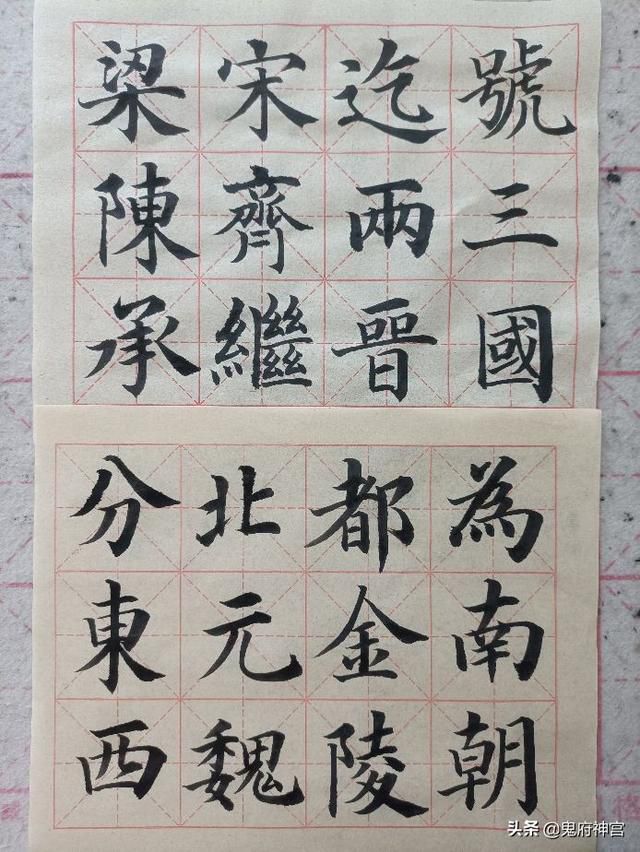 號三國
迄兩晉
宋齊繼
梁陳承
為南朝
都金陵
北元魏
分東西
头条 @鬼府神宫